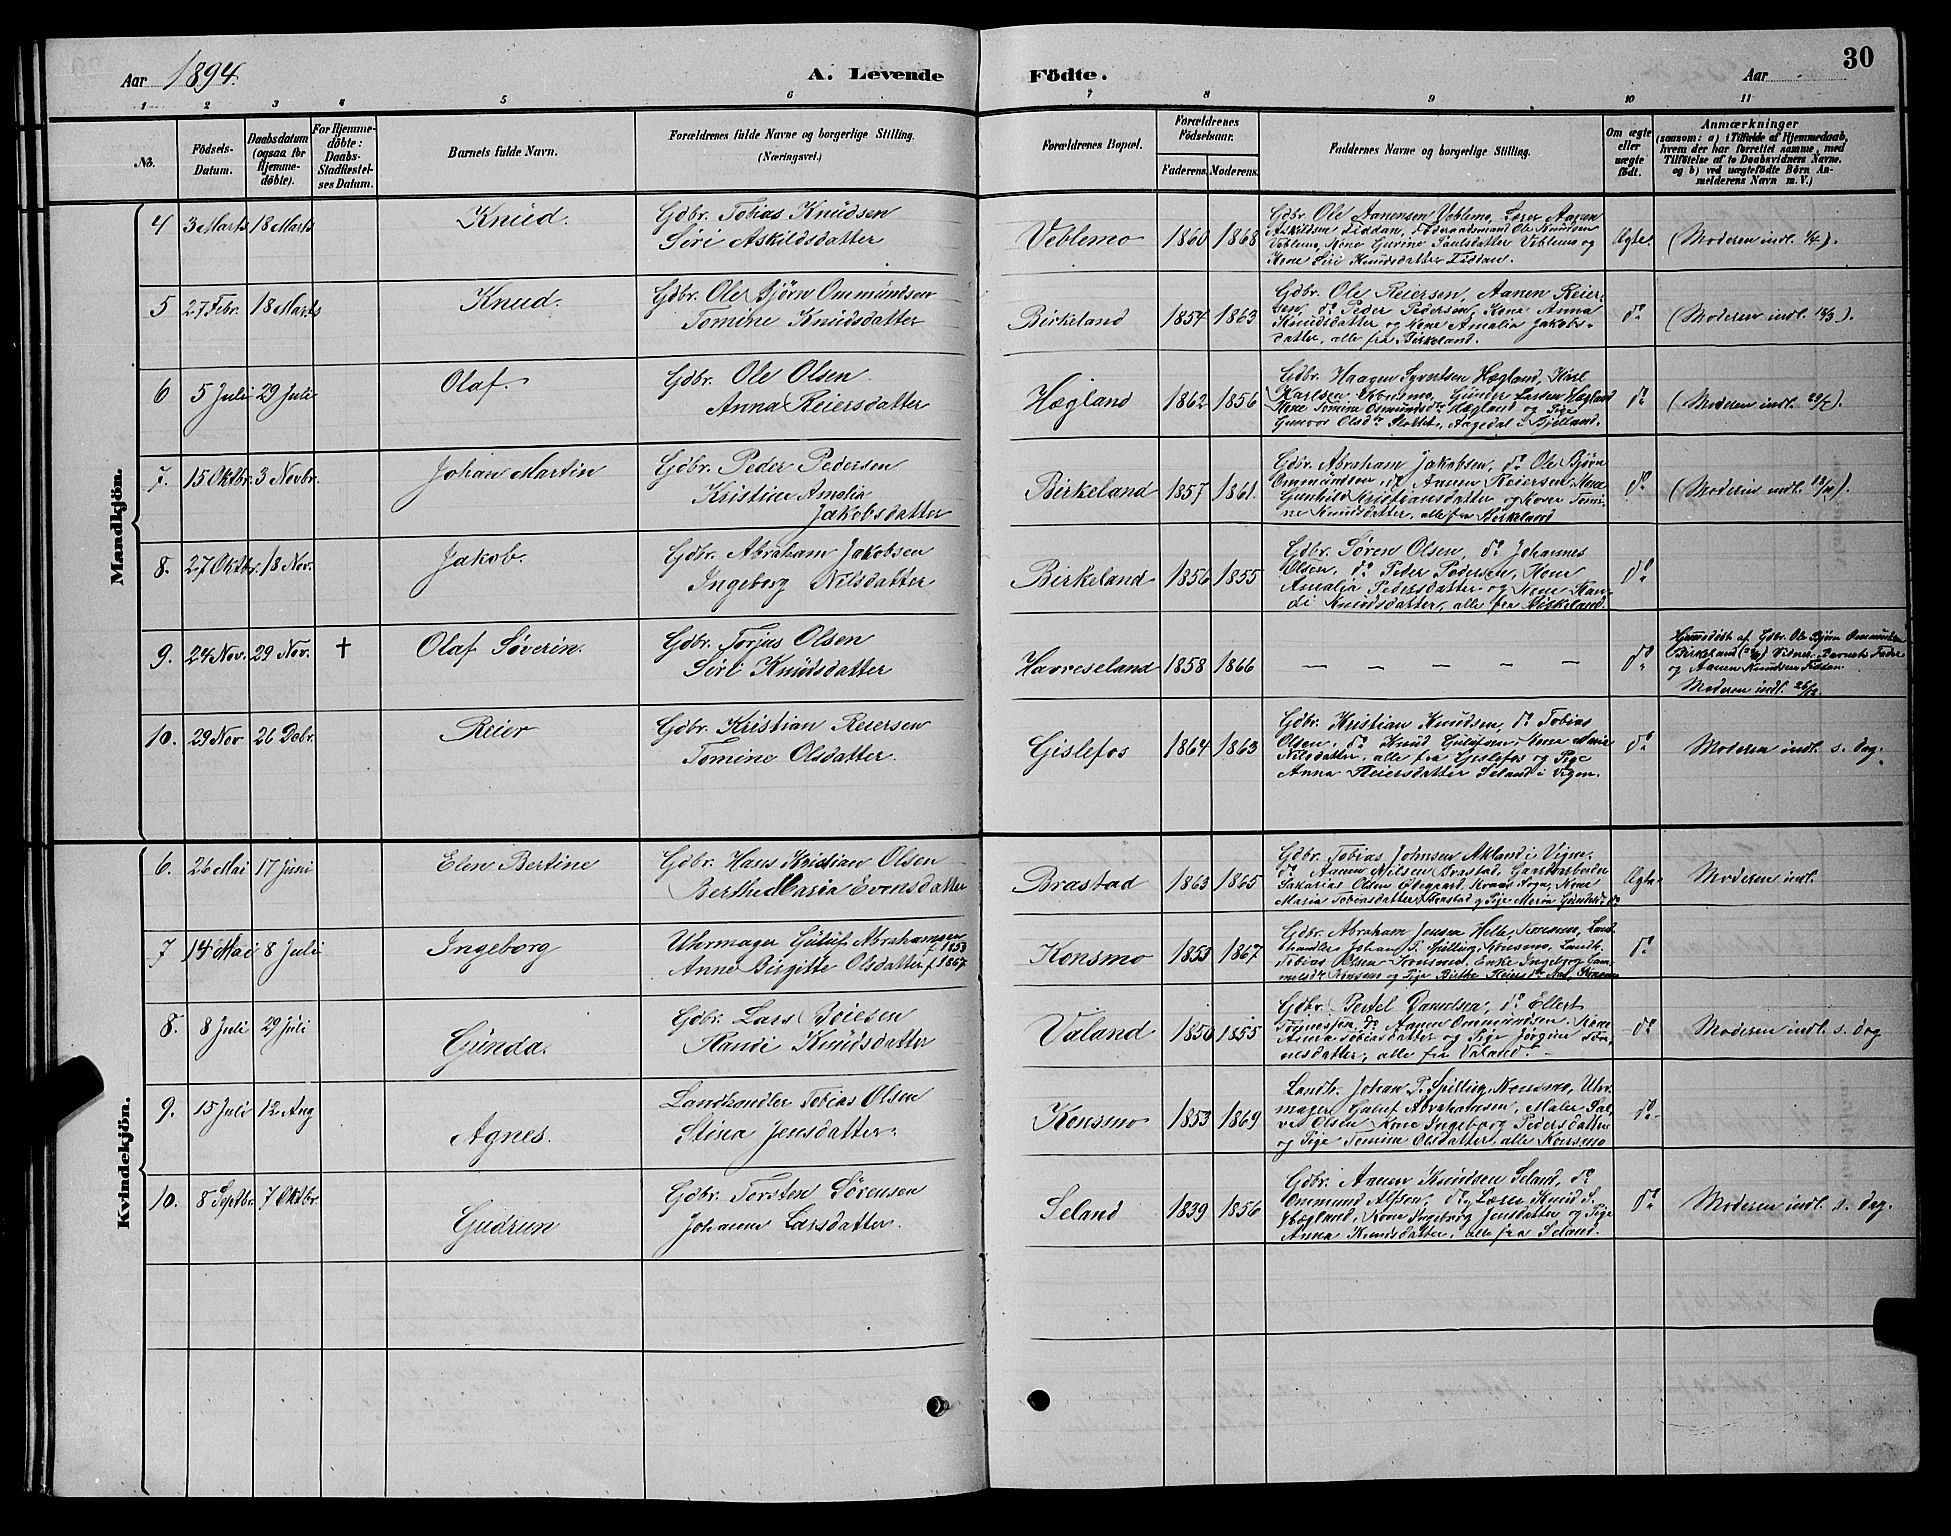 Aar 1894.
A. Levende Födte.
Aar
30
1 2 3 4 5 6 7 8 9 10 11
No.
Födsels-
Datum.
Daabsdatum
(ogsaa for
Hjemme-
döbte).
For Hjemme-
döbte:
Daabs-
Stadfæstel-
ses Datum.
Barnets fulde Navn.
Forældrenes fulde Navne og borgerlige Stilling.
(Næringsvei.)
Forældrenes Bopæl.
Forældrenes
Födselsaar.
Faderens.
Moderens.
Faddernes Navne og borgerlige Stilling.
Om ægte
eller
uægte
födt.
Anmærkninger
(saasom: a) i Tilfælde af Hjemmedaab,
hvem der har forrettet samme, med
Tilföielse af to Daabsvidners Navne.
og b) ved uægtefödte Börn An-
melderens Navn m. V.)
Mandkjön.
4 3 Marts 18 Marts Knud.
Gdbr. Tobias Knudsen
Siri Askildsdatter
Veblemo 1860 1868
Gdbr. Ole Aanensen Veblemo, Lærer Aanen
Askildsen Fiddan, Föderaadsmand Ole Knudsen
Veblemo, Kone Gurine Paulsdatter Veblemo og
Kone Siri Knudsdatter Fiddan.
Ægte. (Moderen indl. ).
5 27 Febr. 18 Marts Knud.
Gdbr. Ole Bjørn Ommundsen
Tomine Knudsdatter
Birkeland 1854 1863
Gdbr. Ole Reiersen, Aanen Reier-
sen, do Peder Pedersen, Kone Anna
Knudsdatter og Kone Amalia Jakobs-
datter, alle fra Birkeland.
do (Moderen indl. 18/3).
6 5 Juli 29 Juli Olaf.
Gdbr. Ole Olsen
Anna Reiersdatter
Hægland 1862 1856
Gdbr. Haagen Syvertsen Hægland, Karl
Karlsen Konsmo, Gunder Larsen Hægland
Kone Tomine Osmundsdr Hægland og Pige
Gunvor Olsdr Slottet, Aagedal i Bjelland.
do (Moderen indl. 29/7).
7. 15 Oktbr. 3 Novbr. Johan Martin
Gdbr. Peder Pedersen
Kristine Amalia
Jakobsdatter
Birkeland 1857 1861.
Gdbr. Abraham Jakobsen, do Ole Bjørn
Ommundsen, do Aanen Reiersen, Kone
Gunhild Kristiansdatter og Kone Tomi-
ne Knudsdatter, alle fra Birkeland
do (Moderen indl. ).
8. 27 Oktbr. 18 Nov. Jakob.
Gdbr. Abraham Jakobsen
Ingeborg Nilsdatter
Birkeland 1856 1855
Gdbr. Søren Olsen, do Johannes
Olsen, do Peder Pedersen, Kone
Amalia Pedersdatter og Kone Ran-
di Knudsdatter, alle fra Birkeland.
do
9. 24 Nov. 29 Nov. † Olaf Søverin.
Gdbr. Torjus Olsen
Siri Knudsdatter
Havreseland 1858 1866
— — — — — —
do
Hjemmedöbt af Gdbr. Ole Bjørn Ommundsen
Birkeland Vidner: Barnets Fader
og Aanen Knudsen Fiddan
Moderen indl. 26/12.
10. 29 Nov 26 Debr. Reier
Gdbr. Kristian Reiersen
Tomine Olsdatter.
Gislefos 1864 1863
Gdbr. Kristian Knudsen, do Tobias
Olsen, do Knud Gulufsen, Kone Marie
Nilsdatter, alle fra Gislefos og Pige
Anna Reiersdatter Seland i Vigm.
do Moderen indl. s. dag.
Kvindekjön.
6. 26 Mai 17 Juni Elen Bertine
Gdbr. Hans Kristian Olsen
Berthe Maria Evensdatter
Brastad 1863 1865
Gdbr. Tobias Johnsen Akland i Vigm.
do Aanen Nilsen Brastad, Gaardarbeider
Sakarias Olsen Ødegaard, Sogn, Kone
Maria Tobiasdatter Brastad og Pige Maria
Ægte Moderen indl.
7 14 Mai 8 Juli Ingeborg
Uhrmager Guluf Abrahamsen f. 1853
Anne Birgitte Olsdatter f 1867
Konsmo 1853 1867
Gdbr. Abraham Jensen Helle, Konsmo, Land-
handler Johan P. Spilling, Konsmo, Landh.
Tobias Olsen Konsmo, Enke Ingeborg
Konsmo og Pige Birthe Reiersdr
do
8. 8 Juli 29 Juli Gunda.
Gdbr. Lars Boiesen
Randi Knudsdatter
Valand 1850 1855
Gdbr. Bertel Danielsen, do Ellert
Tønnessen, do Aanen Ommundsen, Kone
Anna Tobiasdatter og Pige Jørgine Tøn-
nesdatter, alle fra Valand.
do Moderen indl. s. dag
9. 15 Juli 12. Aug Agnes.
Landhandler Tobias Olsen
Stina Jensdatter.
Konsmo 1853 1869
Landh. Johan P. Spilling, Konsmo, Uhr-
mager Guluf Abrahamsen, Maler Sal-
ve Olsen, Kone Ingeborg Pedersdatter
og Pige Tomine Olsdatter, alle Konsmo
do
10. 8 Septbr. 7 Oktbr. Gudrun
Gdbr. Torsten Sørensen
Johanne Larsdatter.
Seland 1839 1856
Gdbr. Aanen Knudsen Seland, do
Ommund Alfsen, do, Lærer Knud S.
Hægland, Kone Ingeborg Jensdatter og Pige
Anna Knudsdatter, alle fra Seland.
do Moderen indl. s. dag.